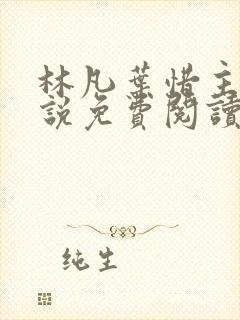 林凡葉惜主
說免費閱讀
纯生